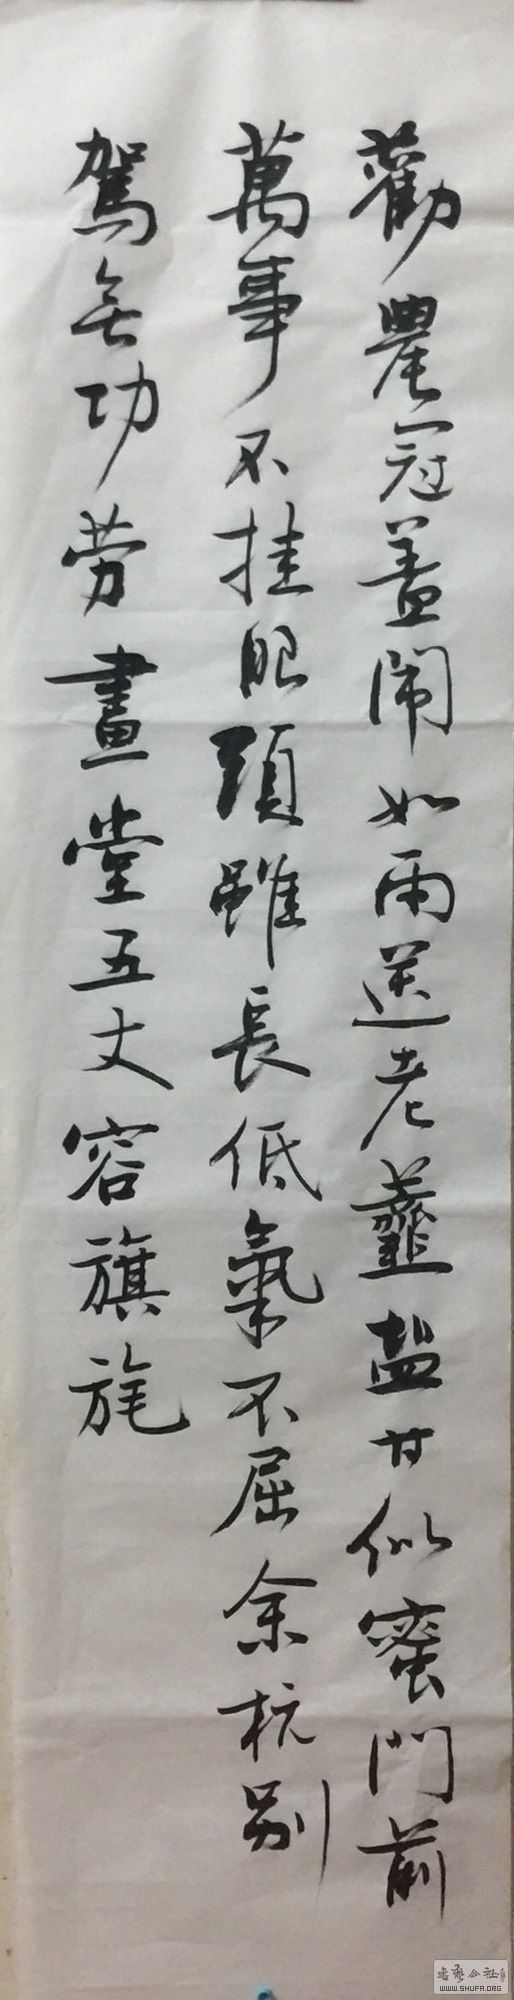 勸農冠蓋鬧如雨送老虀盐甘似蜜門前
萬事不挂眼頭雖長低氣不屈余杭別
駕無功勞畫堂五丈容旗旄
書藝公社
WWW.SHUFA.ORG